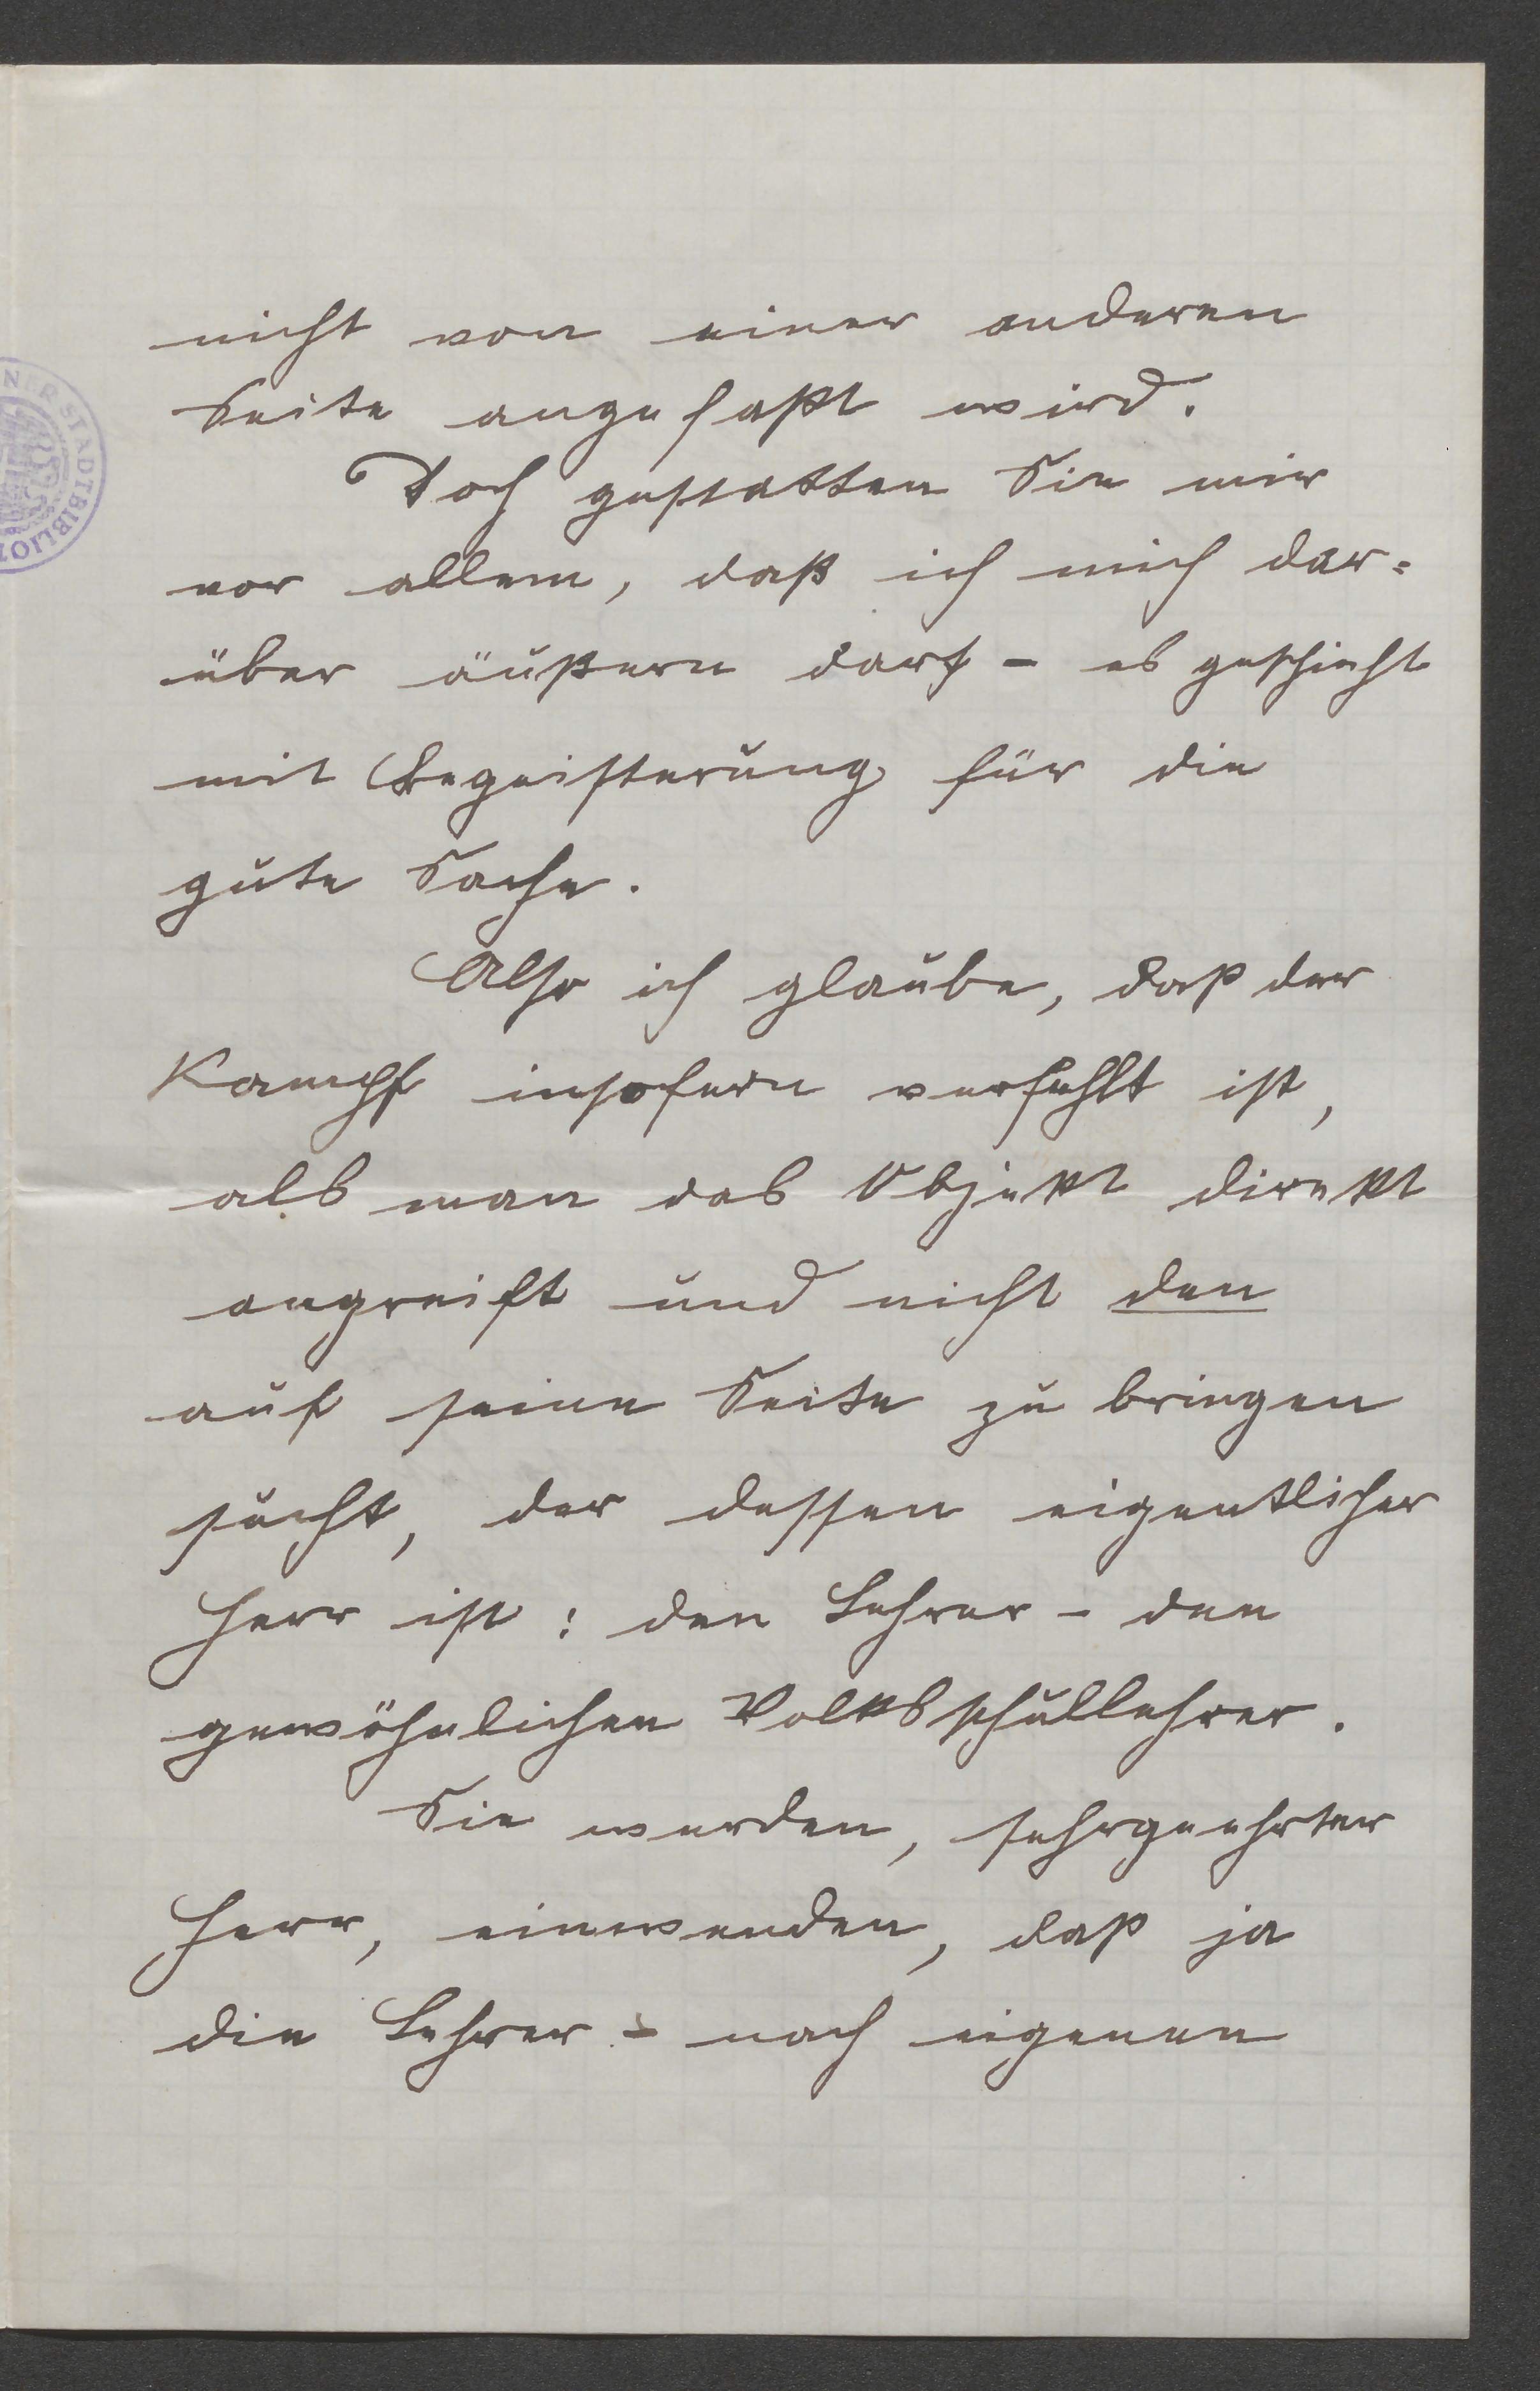 nicht von einer anderen
Seite angefaßt wird.
Doch gestatten Sie mir
vor allem, daß ich mich dar=
über äußern darf – es geschieht
mit Begeisterung für die
gute Sache.
Also ich glaube, daß der
Kampf insofern verfehlt ist,
als man das Objekt direkt
angreift und nicht den
auf seine Seite zu bringen
sucht, der dessen eigentlicher
Herr ist: den Lehrer – den
gewöhnlichen Volksschullehrer.
Sie werden, sehrgeehrter
Herr, einwenden, daß ja
die Lehrer – nach eigenen